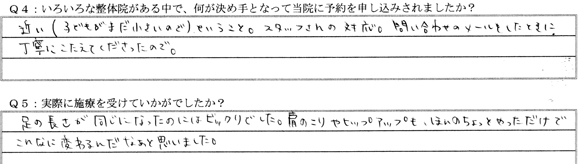 Q4：いろいろな整体院がある中で、何が決め手となって当院に予約を申し込みされましたか？
近い（子どもがまだ小さいので）ということ。スタッフさんの対応。問い合わせのメールをしたときに
丁寧にこたえてくださったので。
Q5：実際に施療を受けていかがでしたか？
足の長さが同じになったのにはビックリでした。肩のこりやヒップアップも、ほんのちょっとやっただけで
こんなに変わるんだなあと思いました。